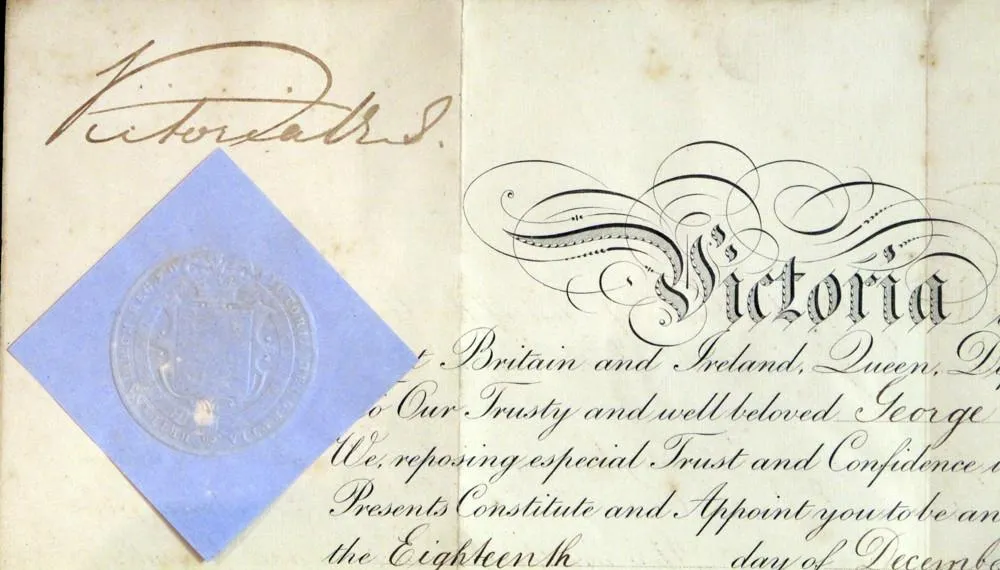 Victoria R I.
Victoria
Britain and Ireland, Queen, D
Our Trusty and well beloved George
We, reposing especial Trust and Confidence
Presents Constitute and Appoint you to be an
the Eighteenth day of Decemb